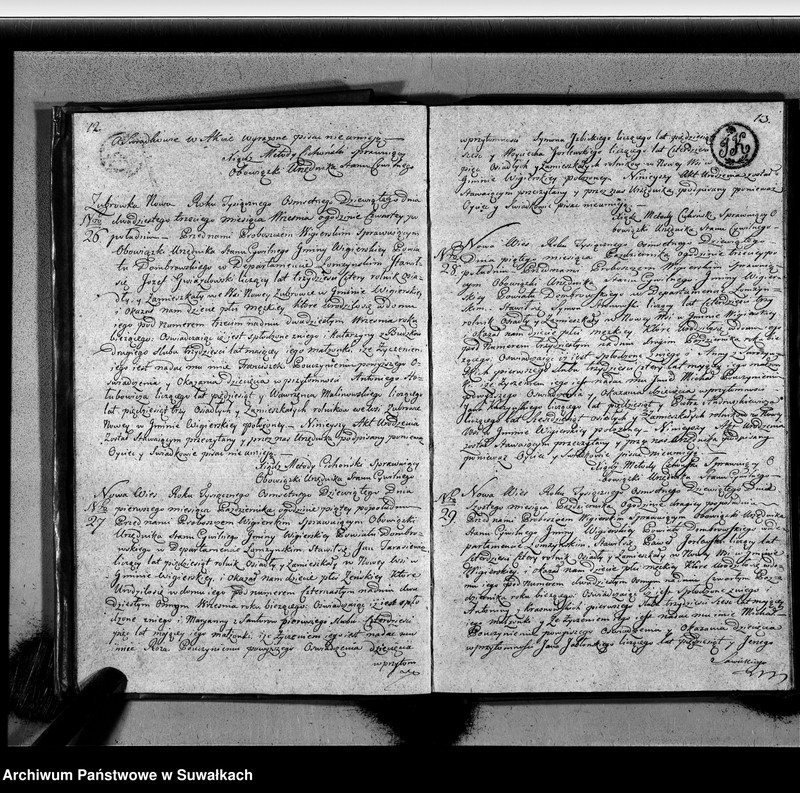 12.
Świadkowie w Akcie wyrażone pisać nie umieją
Xiądz Metody Cichoński Sprawuiący
Obowiązki Urzędnika Stanu Cywilnego
Zubrowka Nowa Roku Tysiącznego Osmsetnego Dziewiątego dnia
Nro 26 dwudziestego trzeciego miesiąca Września ogodzinie czwartey po
południu Przed nami Proboszczem Wigierskim Sprawuiącym
Obowiązki Urzędnika Stanu Cywilnego Gminy Wigierskiey Powia
tu Dombrowskiego w Departamencie Łomżynskim Stawił
się Józef Gwiazdowski liczący lat trzydzieści cztery rolnik osia
dły y Zamieszkały we Wsi Nowey Zubrowce w Gminie Wigierskiey
i Okazał nam dziecie płci męzkiey które Urodziło się w domu
iego pod Numerem trzecim na dniu dwudziestym Września roku
bieżącego. Oswiadczaiąc iż iest spłodzone z niego i Katarzyny z
drugiego ślubu trzydzieści lat maiącey iego małżonki, i że życzeniem
iego iest nadać mu imie Franciszek Pouczynieniu powyższego O
swiadczenia y Okazaniu dziecięcia w przytomności Antoniego Ho
łubowicza liczącego lat pięćdziesiąt y Wawrzenca Malinowskiego liczącego
lat pięćdziesiąt trzy Osiadłych y Zamieszkałych rolników we Wsi Zubrowce
Nowey w Gminie Wigierskiey położoney Ninieyszy Akt Urodzenia
został Stawaiącym przeczytany y przez nas Urzędnika podpisany ponieważ
Oyciec y Swiadkowie pisać nie umieią
Xiądz Metody Cichoński Sprawuiący
Obowiązki Urzędnika Stanu Cywilnego
Nowa Wies Roku Tysiącznego Osmsetnego Dziewiątego Dnia
Nro 27 pierwszego miesiąca Października ogodzinie piątey popołudniu
Przed nami Proboszczem Wigierskim Sprawuiącym Obowiązki
Urzędnika Stanu Cywilnego Gminy Wigierskiey Powiatu Dombro
wskiego w Departamencie Łomżynskim, Stawił się Jan Tarasiewicz
liczący lat pięćdziesiąt rolnik Osiadły y Zamieszkały w Nowey Wsi w
Gminie Wigierskiey, i okazał nam dziecie płci Żeńskiey które
Urodziło się w domu iego pod numerem czternastym na dniu dwu
dziestym Osmym Września roku bieżącego: Oswiadczaiąc iż iest spło
dzone z niego i Maryanny z pierwszego ślubu czterdzieści
pięć lat maiącey iego małżonki: i że życzeniem iego iest nadać mu
imie Roza Pouczynieniu powyższego Oswiadczenia dziecięcia
w przytom
13.
w przytomności Symona liczącego lat pięćdziesiąt
sześć y Woyciecha liczącego lat czterdzieści
pięć Osiadłych y Zamieszkałych rolników w Nowey Wsi w
Gminie Wigierskiey położoney Ninieyszy Akt Urodzenia został
Stawaiącym przeczytany y przez nas Urzędnika podpisany ponieważ
Oyciec y Swiadkowie pisać nie umieią
Xiądz Metody Cichoński Sprawuiący O
bowiązki Urzędnika Stanu Cywilnego
Nowa Wies Roku Tysiącznego Osmsetnego Dziewiątego
Nro 28 Dnia piątego miesiąca Października ogodzinie trzeciey po
południu Przed nami Proboszczem Wigierskim Sprawuią
cym Obowiązki Urzędnika Stanu Cywilnego Gminy Wigier
skiey Powiatu Dombrowskiego w Departamencie Łomżyn
skim. Stawił się Symon liczący lat czterdzieści trzy
rolnik Osiadły y Zamieszkały w Nowey Wsi w Gminie Wigierskiey
i Okazał nam dziecie płci męzkiey, które Urodziło się w domu iego
pod Numerem trzydziestym na dniu drugim Października roku bie
żącego. Oswiadczaiąc iż iest spłodzone z niego i Anny z
pierwszego ślubu trzydzieści cztery lat maiącey iego małżon
ki, i że życzeniem iego iest nadać mu Imie Michał Pouczynieniu
powyższego Oswiadczenia y Okazaniu dziecięcia w przytomności
Jana liczącego lat pięćdziesiąt y Piotra
liczącego lat Osiadłych y Zamieszkałych rolników w Nowey
Wsi w Gminie Wigierskiey położoney. Ninieyszy Akt Urodzenia
został Stawaiącym przeczytany y przez nas Urzędnika podpisany
ponieważ Oyciec y Swiadkowie pisać nie umieią
Xiądz Metody Cichoński Sprawuiący O
bowiązki Urzędnika Stanu Cywilnego
Nowa Wies Roku Tysiącznego Osmsetnego Dziewiątego Dnia
Nro 29 Szostego miesiąca Października Ogodzinie drugiey popołudniu
Przed nami Proboszczem Wigierskim Sprawuiącym Obowiązki Urzędnika
Stanu Cywilnego Gminy Wigierskiey Powiatu Dombrowskiego w De
partamencie Łomżynskim, Stawił się Paweł liczący lat
czterdzieści cztery rolnik Osiadły y Zamieszkały w Nowey Wsi w Gminie
Wigierskiey, i okazał nam dziecie płci męzkiey które Urodziło się w do
mu iego pod numerem dwudziestym osmym na dniu czwartym Paź
dziernika roku bieżącego. Oswiadczaiąc iż iest spłodzone z niego i
Antoniny z pierwszego ślubu trzydzieści sześć lat maiącey
iego małżonki y że życzeniem iego iest nadać mu imie Michał
Pouczynieniu powyższego Oswiadczenia y Okazaniu dziecięcia
w przytomności Jana Jabłonskiego liczącego lat pięćdziesiąt y Jerzego
Sawickiego
Archiwum Państwowe w Suwałkach